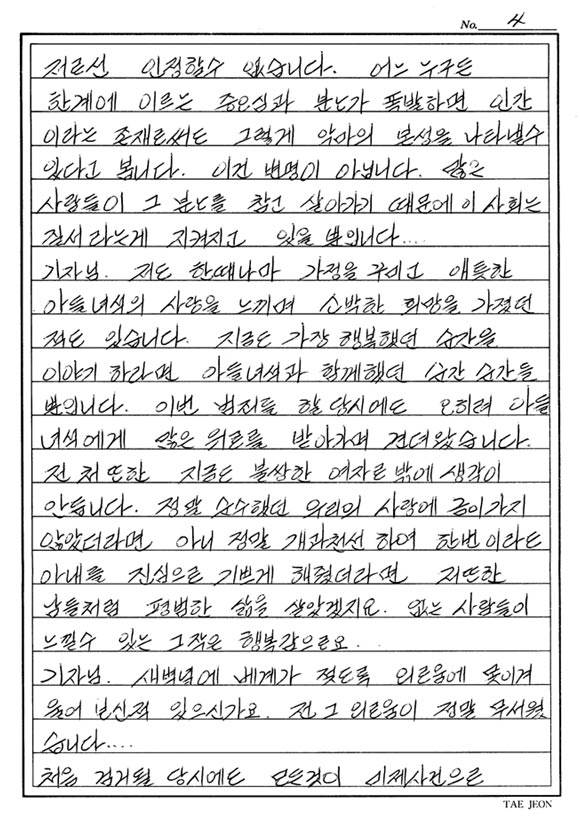 No. 4
저로선 인정할수 없습니다. 어느 누구든
한계에 이르는 증오심과 분노가 폭발하면 인간
이라는 존재로써도 그렇게 악마의 본성을 나타낼수
있다고 봅니다. 이건 변명이 아닙니다. 많은
사람들이 그 분노를 참고 살아가기 때문에 이 사회는
질서라는게 지켜지고 있을 뿐입니다....
기자님. 저도 한때나마 가정을 꾸미고 애틋한
아들녀석의 사랑을 느끼며 소박한 희망을 가졌던
적도 있습니다. 지금도 가장 행복했던 순간을
이야기 하라면 아들녀석과 함께했던 순간 순간들
뿐입니다. 이번 범죄를 할 당시에도 오히려 아들
녀석에게 많은 위로를 받아가며 견뎌왔습니다.
전 처 또한 지금도 불쌍한 여자로 밖에 생각이
안듭니다. 정말 순수했던 우리의 사랑에 금이가지
않았더라면 아니 정말 개과천선 하여 한번이라도
아내를 진심으로 기쁘게 해줬더라면 저또한
남들처럼 평범한 삶을 살았겠지요. 없는 사람들이
느낄수 있는 그작은 행복감으로요.
기자님. 새벽녘에 베게가 젖도록 외로움에 못이겨
울어 보신적 있으신가요. 전 그 외로움이 정말 무서웠
습니다....
처음 검거될 당시에도 모든것이 미제사건으로
TAE JEON